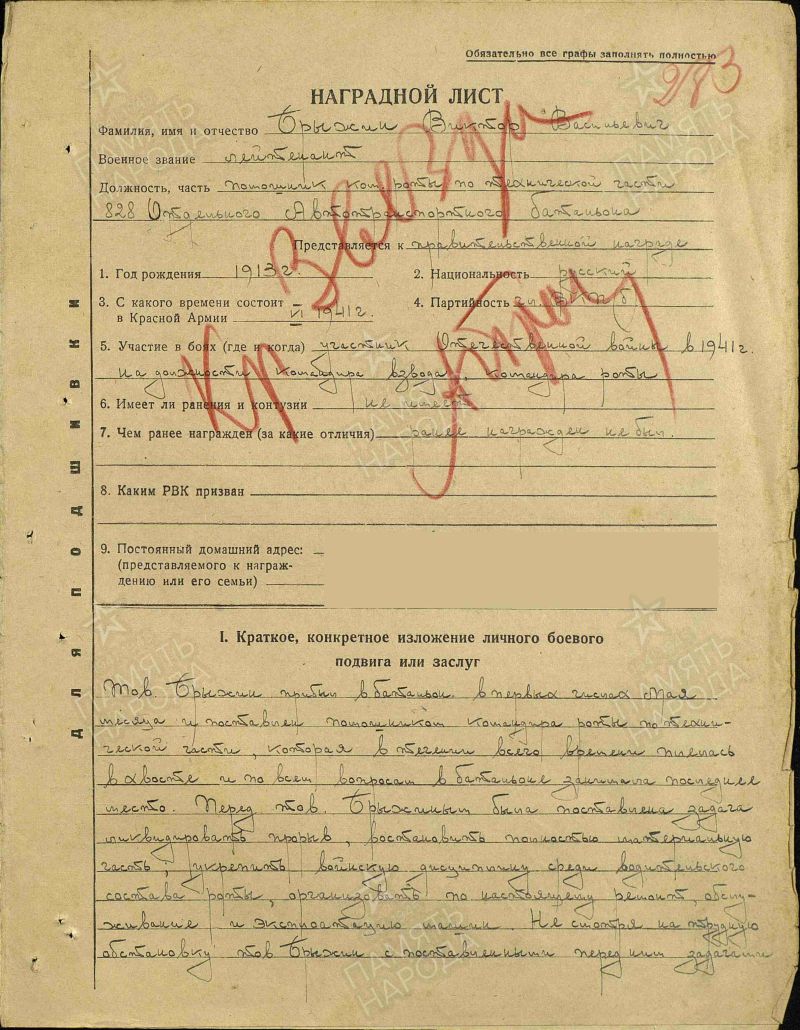 Обязательно все графы заполнять полностью
НАГРАДНОЙ ЛИСТ
Фамилия, имя и отчество Брыжин Виктор Васильевич
Военное звание лейтенант
Должность, часть помощник ком. роты по технической части
828 Отдельного Автотранспортного батальона
Представляется к правительственной награде
Кр Звезда
1. Год рождения 1913 г. 2. Национальность русский
3. С какого времени состоит
в Красной Армии VI 1941 г.
4. Партийность чл. ВКП(б)
5. Участие в боях (где и когда) участник Отечественной войны в 1941 г.
на должности командира взвода, командира роты
6. Имеет ли ранения и контузии не имеет
7. Чем ранее награжден (за какие отличия) ранее награжден не был.
8. Каким РВК призван
9. Постоянный домашний адрес:
(представляемого к награж-
дению или его семьи)
ДЛЯ ПОДШИВКИ
I. Краткое, конкретное изложение личного боевого
подвига или заслуг
Тов. Брыжин прибыл в батальон в первых числах Мая
месяца и поставлен помощником командира роты по техни-
ческой части, которая в течении всего времени плелась
в хвосте и по всем вопросам в батальоне занимала последнее
место. Перед тов. Брыжиным была поставлена задача
ликвидировать прорыв, востановить полностью материальную
часть, укрепить войнскую дисциплину среди водительского
состава роты, организовать по настоящему ремонт, обслу-
живание и эксплоатацию машин. Не смотря на трудную
обстановку тов Брыжин с поставленными перед ним задачами
ПАМЯТЬ НАРОДА